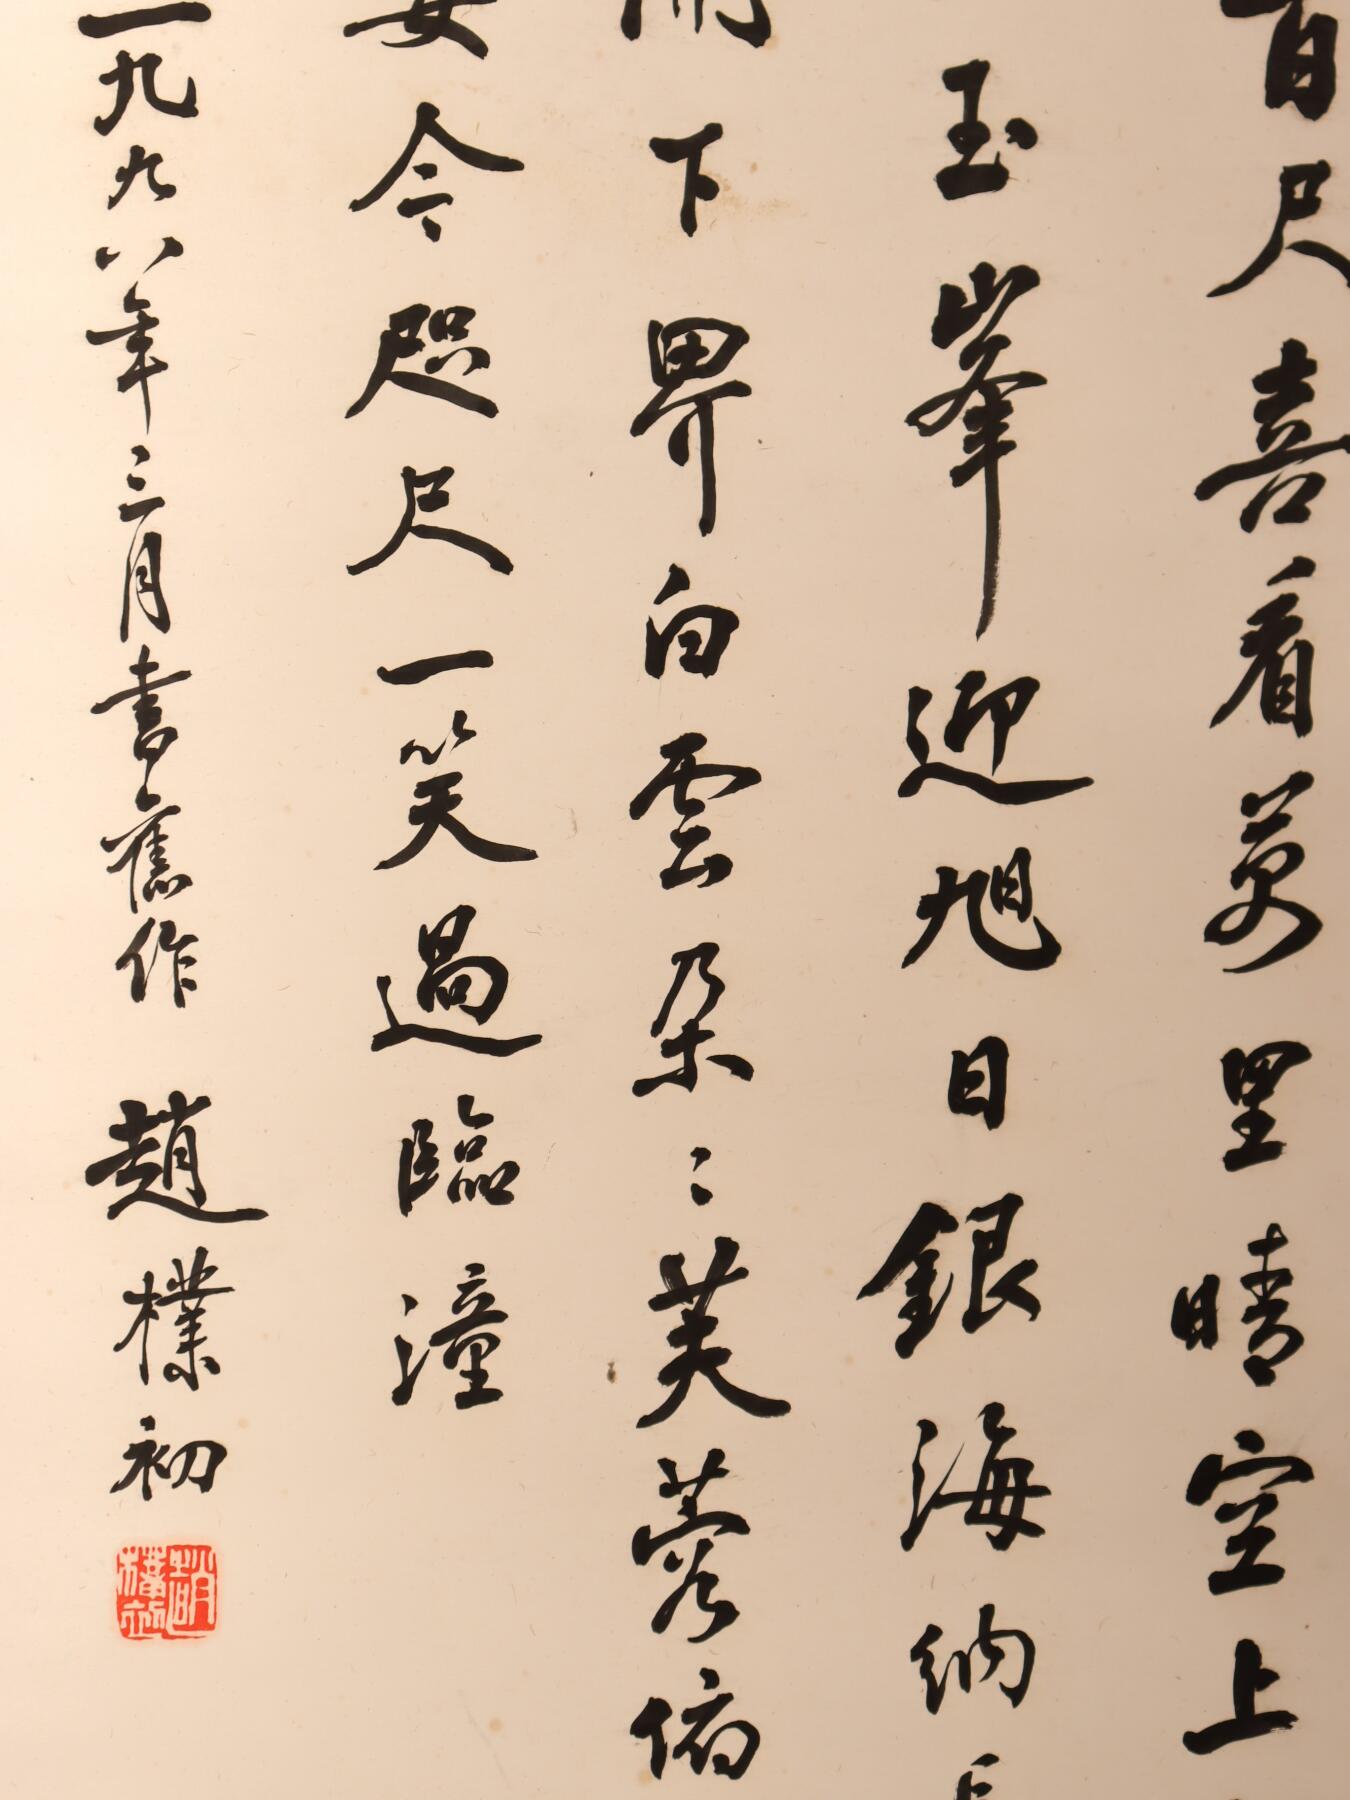 百尺喜看萬里晴空上
玉峯迎旭日銀海納長
下界白雲朵〻芙蓉俯
安今咫尺一笑過臨潼
一九九八年三月書舊作 趙樸初
趙樸初